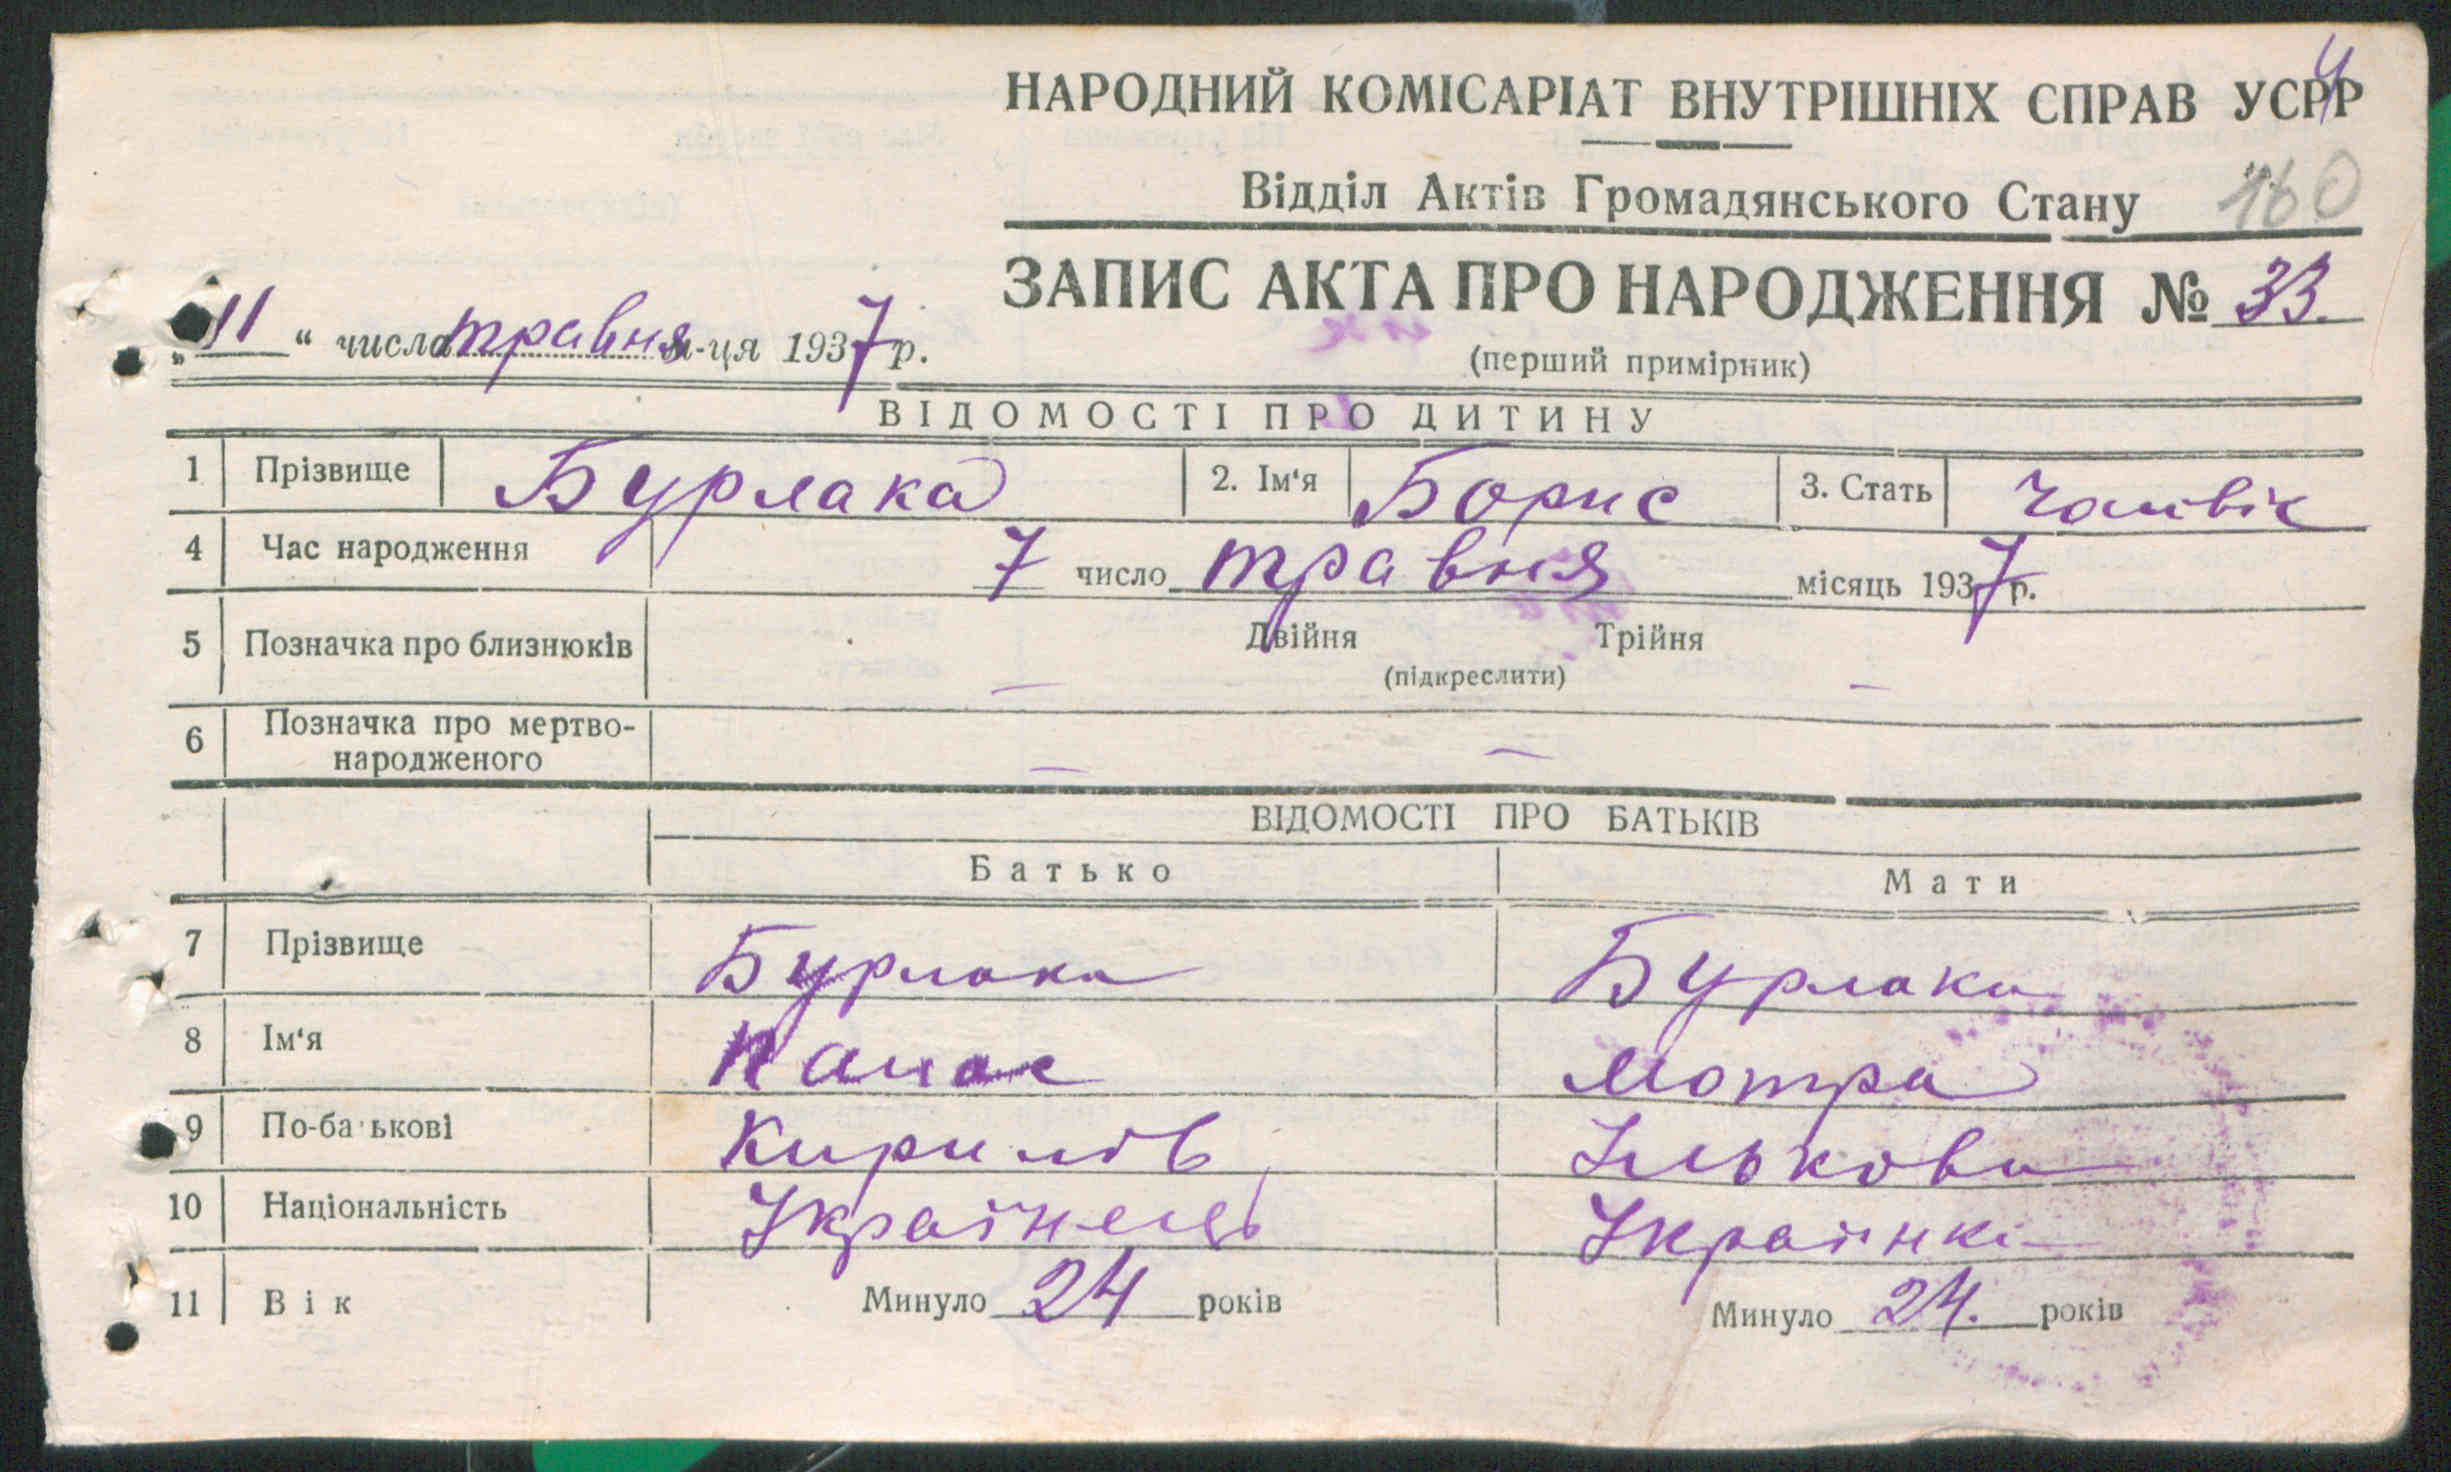 4
НАРОДНИЙ КОМІСАРІАТ ВНУТРІШНІХ СПРАВ УСРР
Відділ Актів Громадянського Стану 160
ЗАПИС АКТА ПРО НАРОДЖЕННЯ № 33.
„11“ числа травня м-ця 1937 р.
(перший примірник)
ВІДОМОСТІ ПРО ДИТИНУ
1 Прізвище Бурлака 2. Ім‘я Борис 3. Стать Чоловік
4 Час народження 7 число травня місяць 1937 р.
5 Позначка про близнюків Двійня Трійня
(підкреслити)
— —
6 Позначка про мертво-
народженого — —
ВІДОМОСТІ ПРО БАТЬКІВ
Батько Мати
7 Прізвище Бурлака Бурлака
8 Ім‘я Панас Мотра
9 По-батькові Кирилів Ількова
10 Національність Українець Українка
11 Вік Минуло 24 років Минуло 24. років